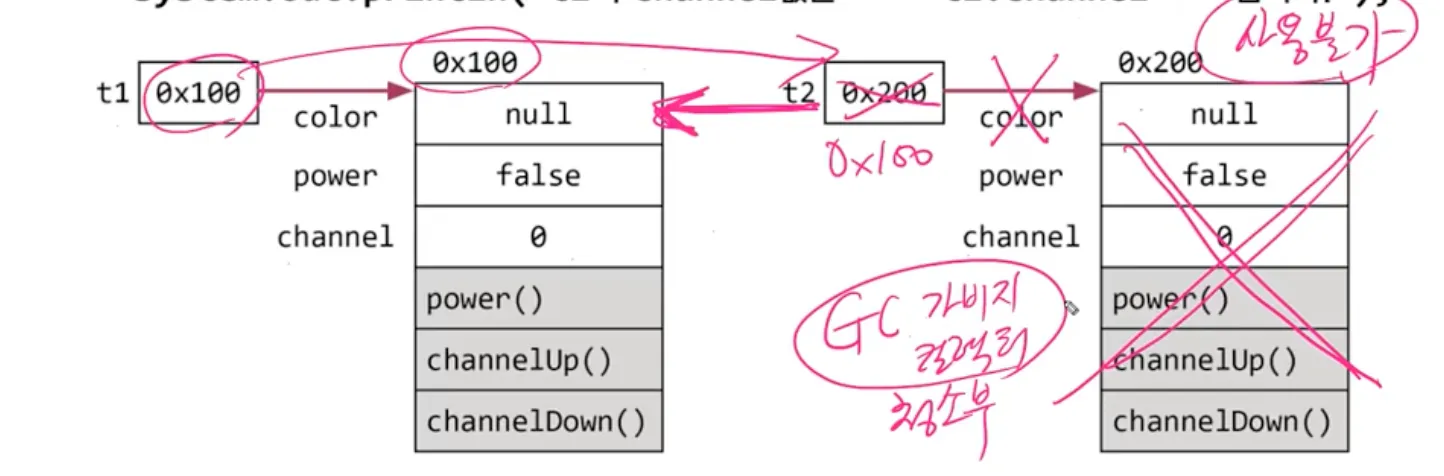 0x100
0x200
사용불가
t1 0x100
t2 0x200
0x100
color
null
color
null
power
false
power
false
channel
0
channel
0
power()
power()
GC 가비지
컬렉터
청소부
channelUp()
channelUp()
channelDown()
channelDown()